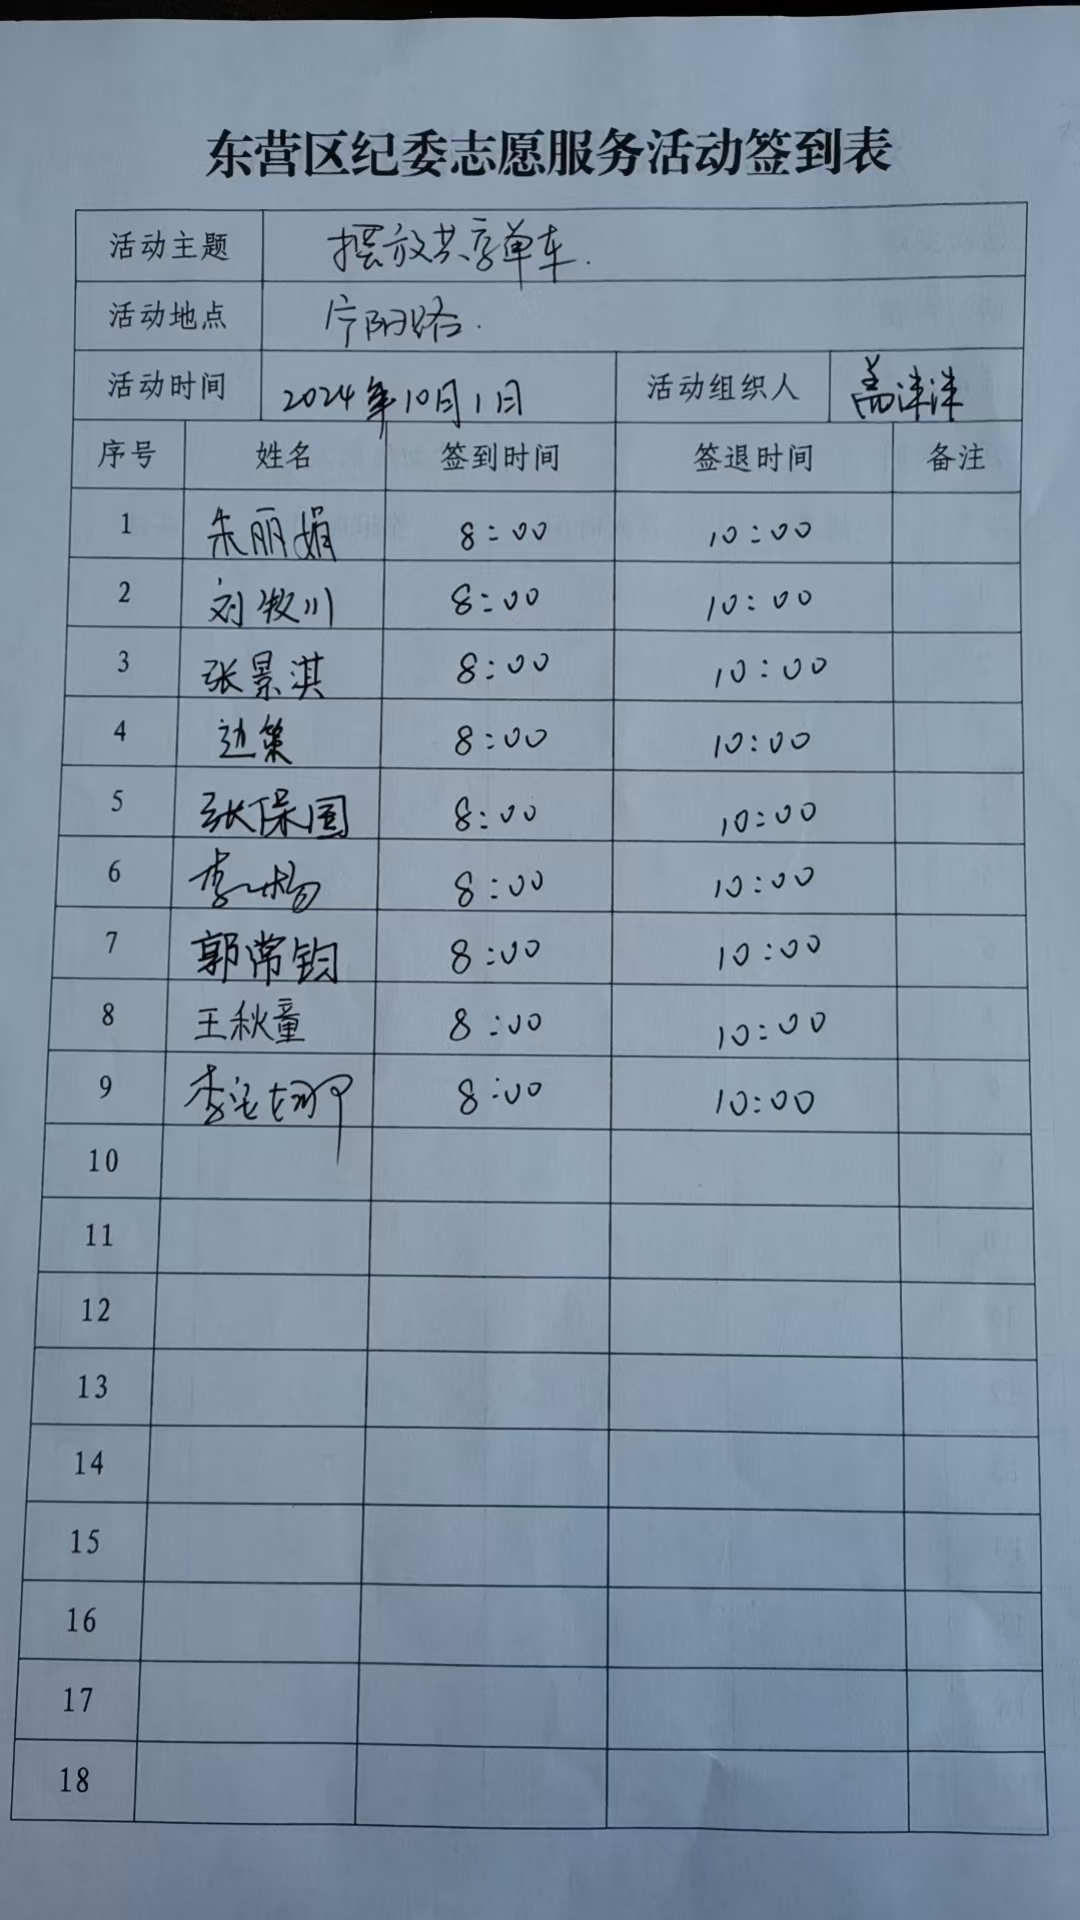 东营区纪委志愿服务活动签到表
活动主题 摆放共享单车.
活动地点 宁阳路.
活动时间 2024年10月1日 活动组织人 盖津津
序号 姓名 签到时间 签退时间 备注
1 朱丽娟 8:00 10:00
2 刘牧川 8:00 10:00
3 张景淇 8:00 10:00
4 边策 8:00 10:00
5 张保国 8:00 10:00
6 李杨 8:00 10:00
7 郭常钧 8:00 10:00
8 王秋童 8:00 10:00
9 8:00 10:00
10
11
12
13
14
15
16
17
18